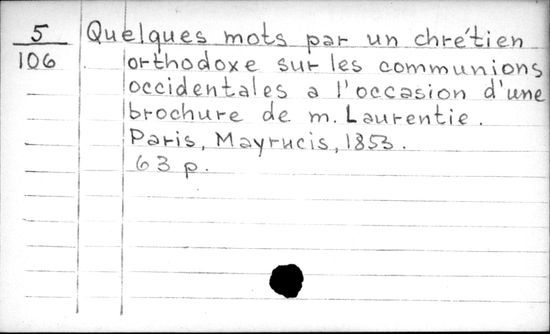 5 Quelques mots par un chrétien
106 orthodoxe sur les communions
occidentales a l'occasion d'une
brochure de m. Laurentie.
Paris, Mayrucis, 1853.
63 p.